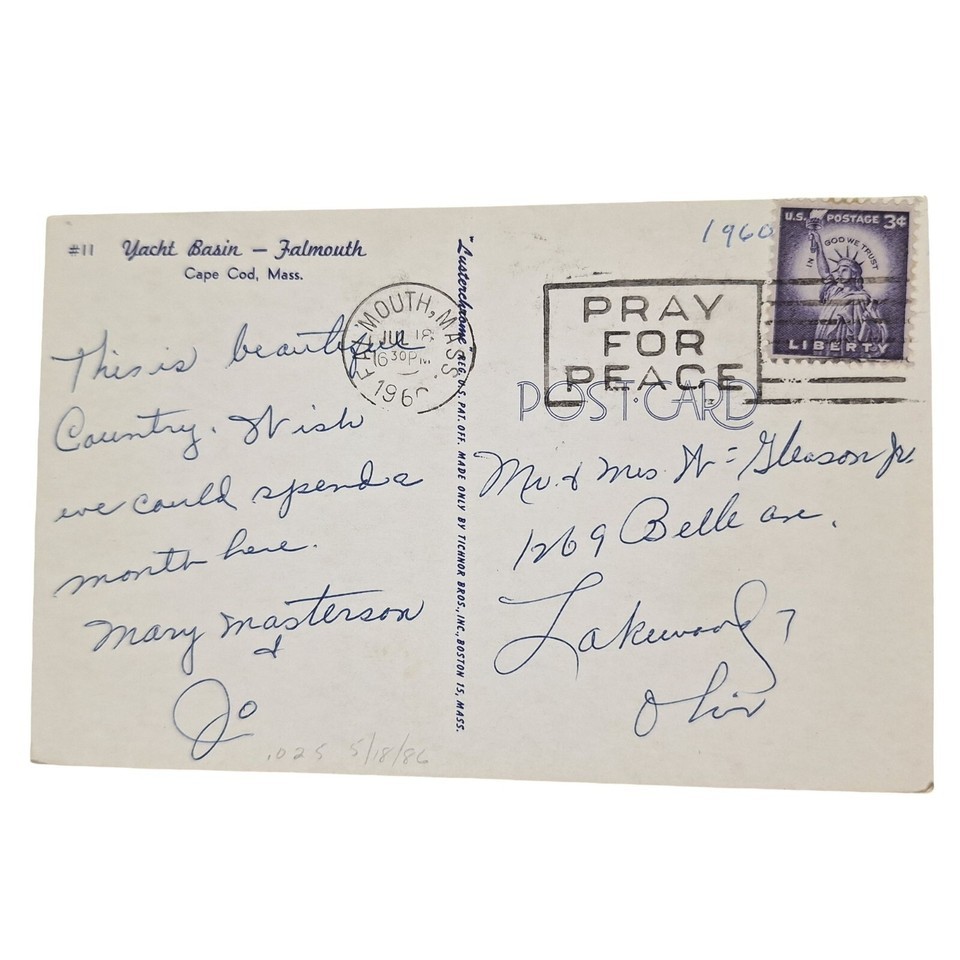 #11 Yacht Basin — Falmouth
Cape Cod, Mass.
This is beautiful
Country. Wish
we could spend a
month here.
Mary Masterson
&
Jo
.025 5/18/86
"Lusterchrome" REG. U.S. PAT. OFF. MADE ONLY BY TICHNOR BROS., INC., BOSTON 15, MASS.
FALMOUTH, MASS.
JUL 18
630PM
1960
1960
PRAY
FOR
PEACE
U.S. POSTAGE 3¢
IN GOD WE TRUST
LIBERTY
POST CARD
Mr. & Mrs. W= Gleason Jr.
1269 Belle ave.
Lakewood 7
Ohio